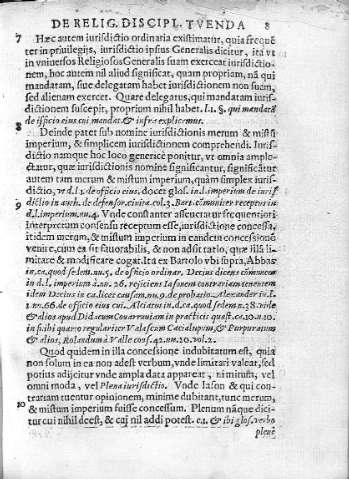 DE RELIG. DISCIPL. TVENDA 8
7 Hæc autem iurisdictio ordinaria existimatur, quia frequē
ter in priuilegijs, iurisdictio ipsius Generalis dicitur, ita vt
in vniuersos Religiosos Generalis suam exerceat iurisdictio
nem, hoc autem nil aliud significat, quam propriam, nā qui
mandatam, siue delegatam habet iurisdictionem non suam,
sed alienam exercet. Quare delegatus, qui mandatam iuris-
dictionem suscepit, proprium nihil habet. l.1. §. qui mandatā
de officio eius cui mandat. & infra explicemus.
8 Deinde patet sub nomine iurisdictionis merum & mistū
imperium, & simplicem iurisdictionem comprehendi. Iuris-
dictio namque hoc loco generice ponitur, vt omnia ample-
ctatur, quæ iurisdictionis nomine significantur, significātur
autem tam merum & mistum imperium, quàm simplex iurisf
dictio, vt d.l.3. de officio eius, docet glos. in l. imperium de iurisf
9 dictio in auth. de defensor. ciuita. col.3. Bart. cōmuniter receptus in
d.l. imperium. nu.4. Vnde constanter asseueratur frequentiori
interpretum consensu receptum esse, iurisdictione concessa,
itidem merum, & mistum imperium in eandem concessionē
venire, cum ea sit fauorabilis, & non adsit ratio, quæ illā li-
mitare & modificare cogat. Ita ex Bartolo vbi supra, Abbas
in. ca. quod sedem. nu.5. de officio ordinar. Decius dicens cōmunem
in d.l. imperium à nu. 26. reijciens Iasonem contrariam tenentem
idem Decius in ca. licet causam. nu.9. de probatio. Alexander in l.
1. nu.66. de officio eius cui. Alciatus in d.ca. quod sedem. à .38. vide
& alios apud Didacum Couarruuiam in practicis quæst. ca.10. à .10.
in fi. ibi quare regulariter Valascum Cacialupum, & Purpuratum
& alios, Rolandum à Valle cons. 42. nu.20. vol.2.
Quod quidem in illa concessione indubitatum est, quia
non solum in ea non adest verbum, vnde limitari valeat, sed
potius adijcitur vnde ampla data appareat, ni mirum, vel
omni moda, vel Plena iurisdictio. Vnde Iason & qui con-
trariam tuentur opinionem, minime dubitant, tunc merum,
10 & mistum imperium fuisse concessum. Plenum nāque dici-
tur cui nihil deest, & cui nil addi potest. & ibi glos. verbo
plenè